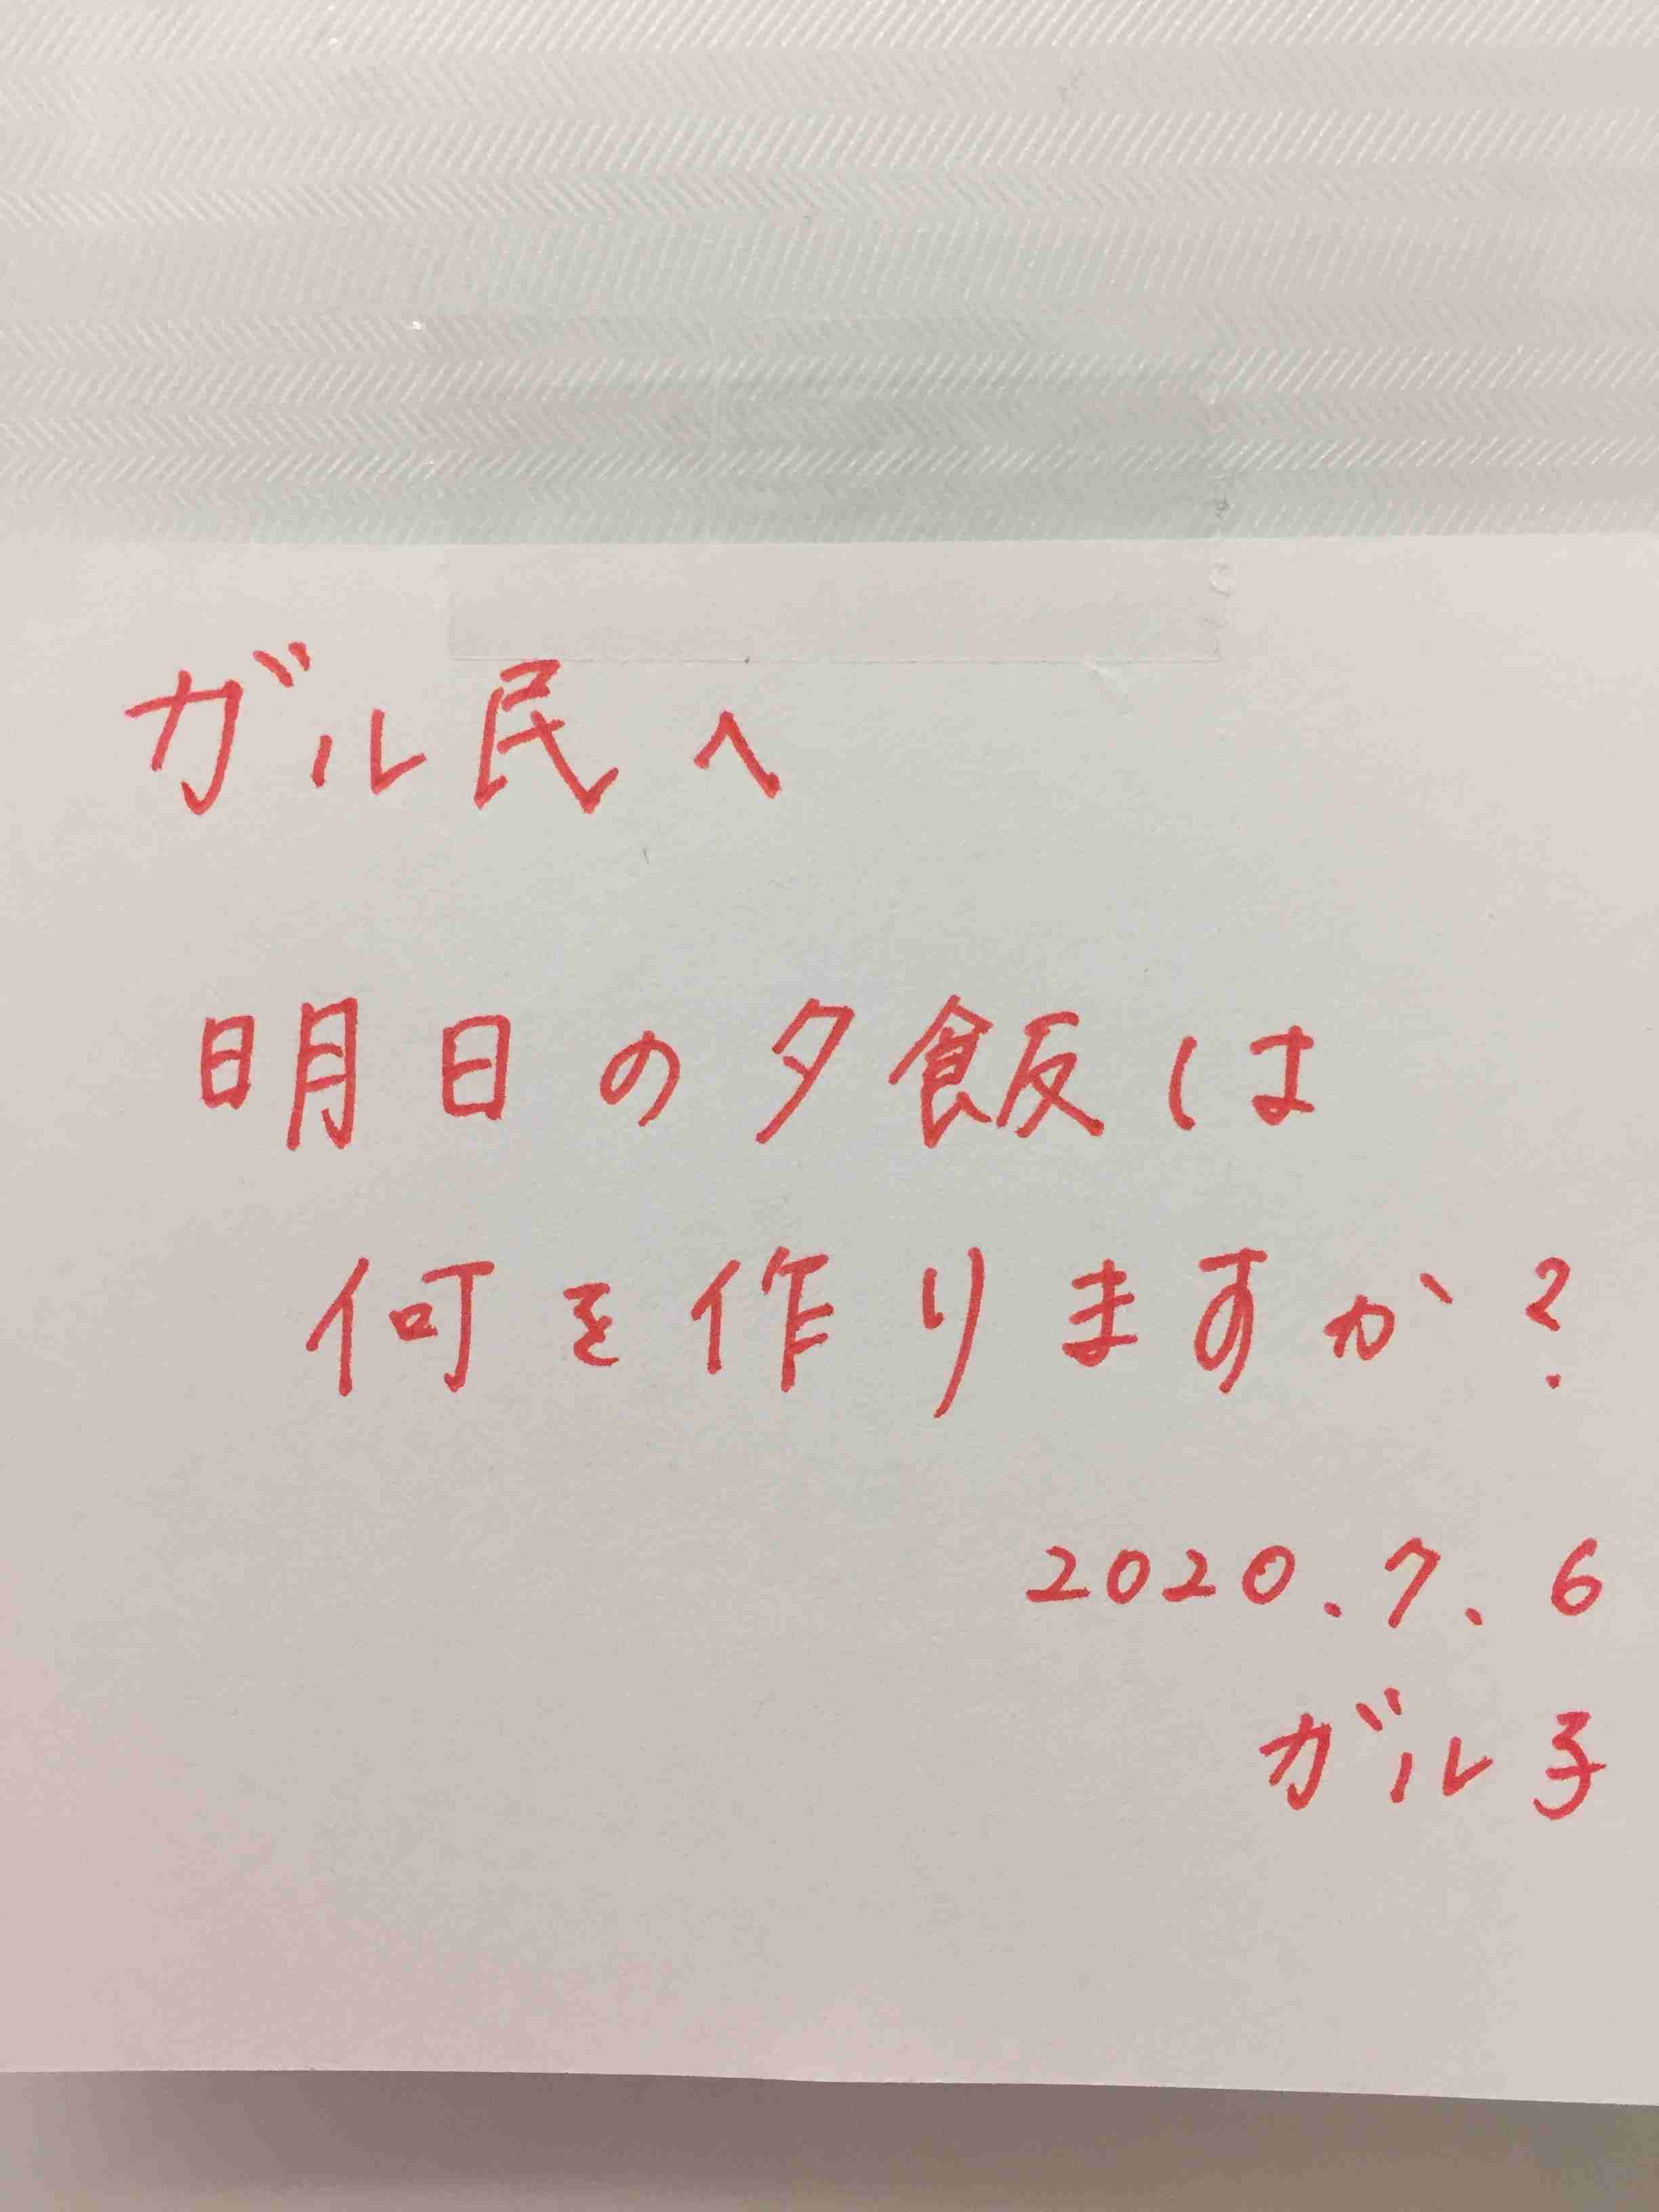 ガル民へ
明日の夕飯は
何を作りますか?
2020.7.6
ガル子